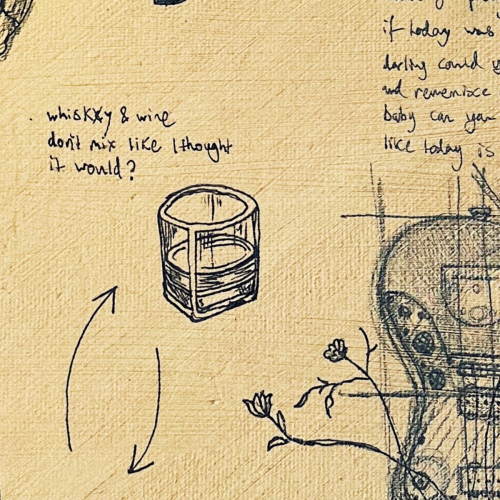 whiskxy & wine
don't mix like I thought
it would?
if today was
darling could
and rememisce
baby can you
like today is